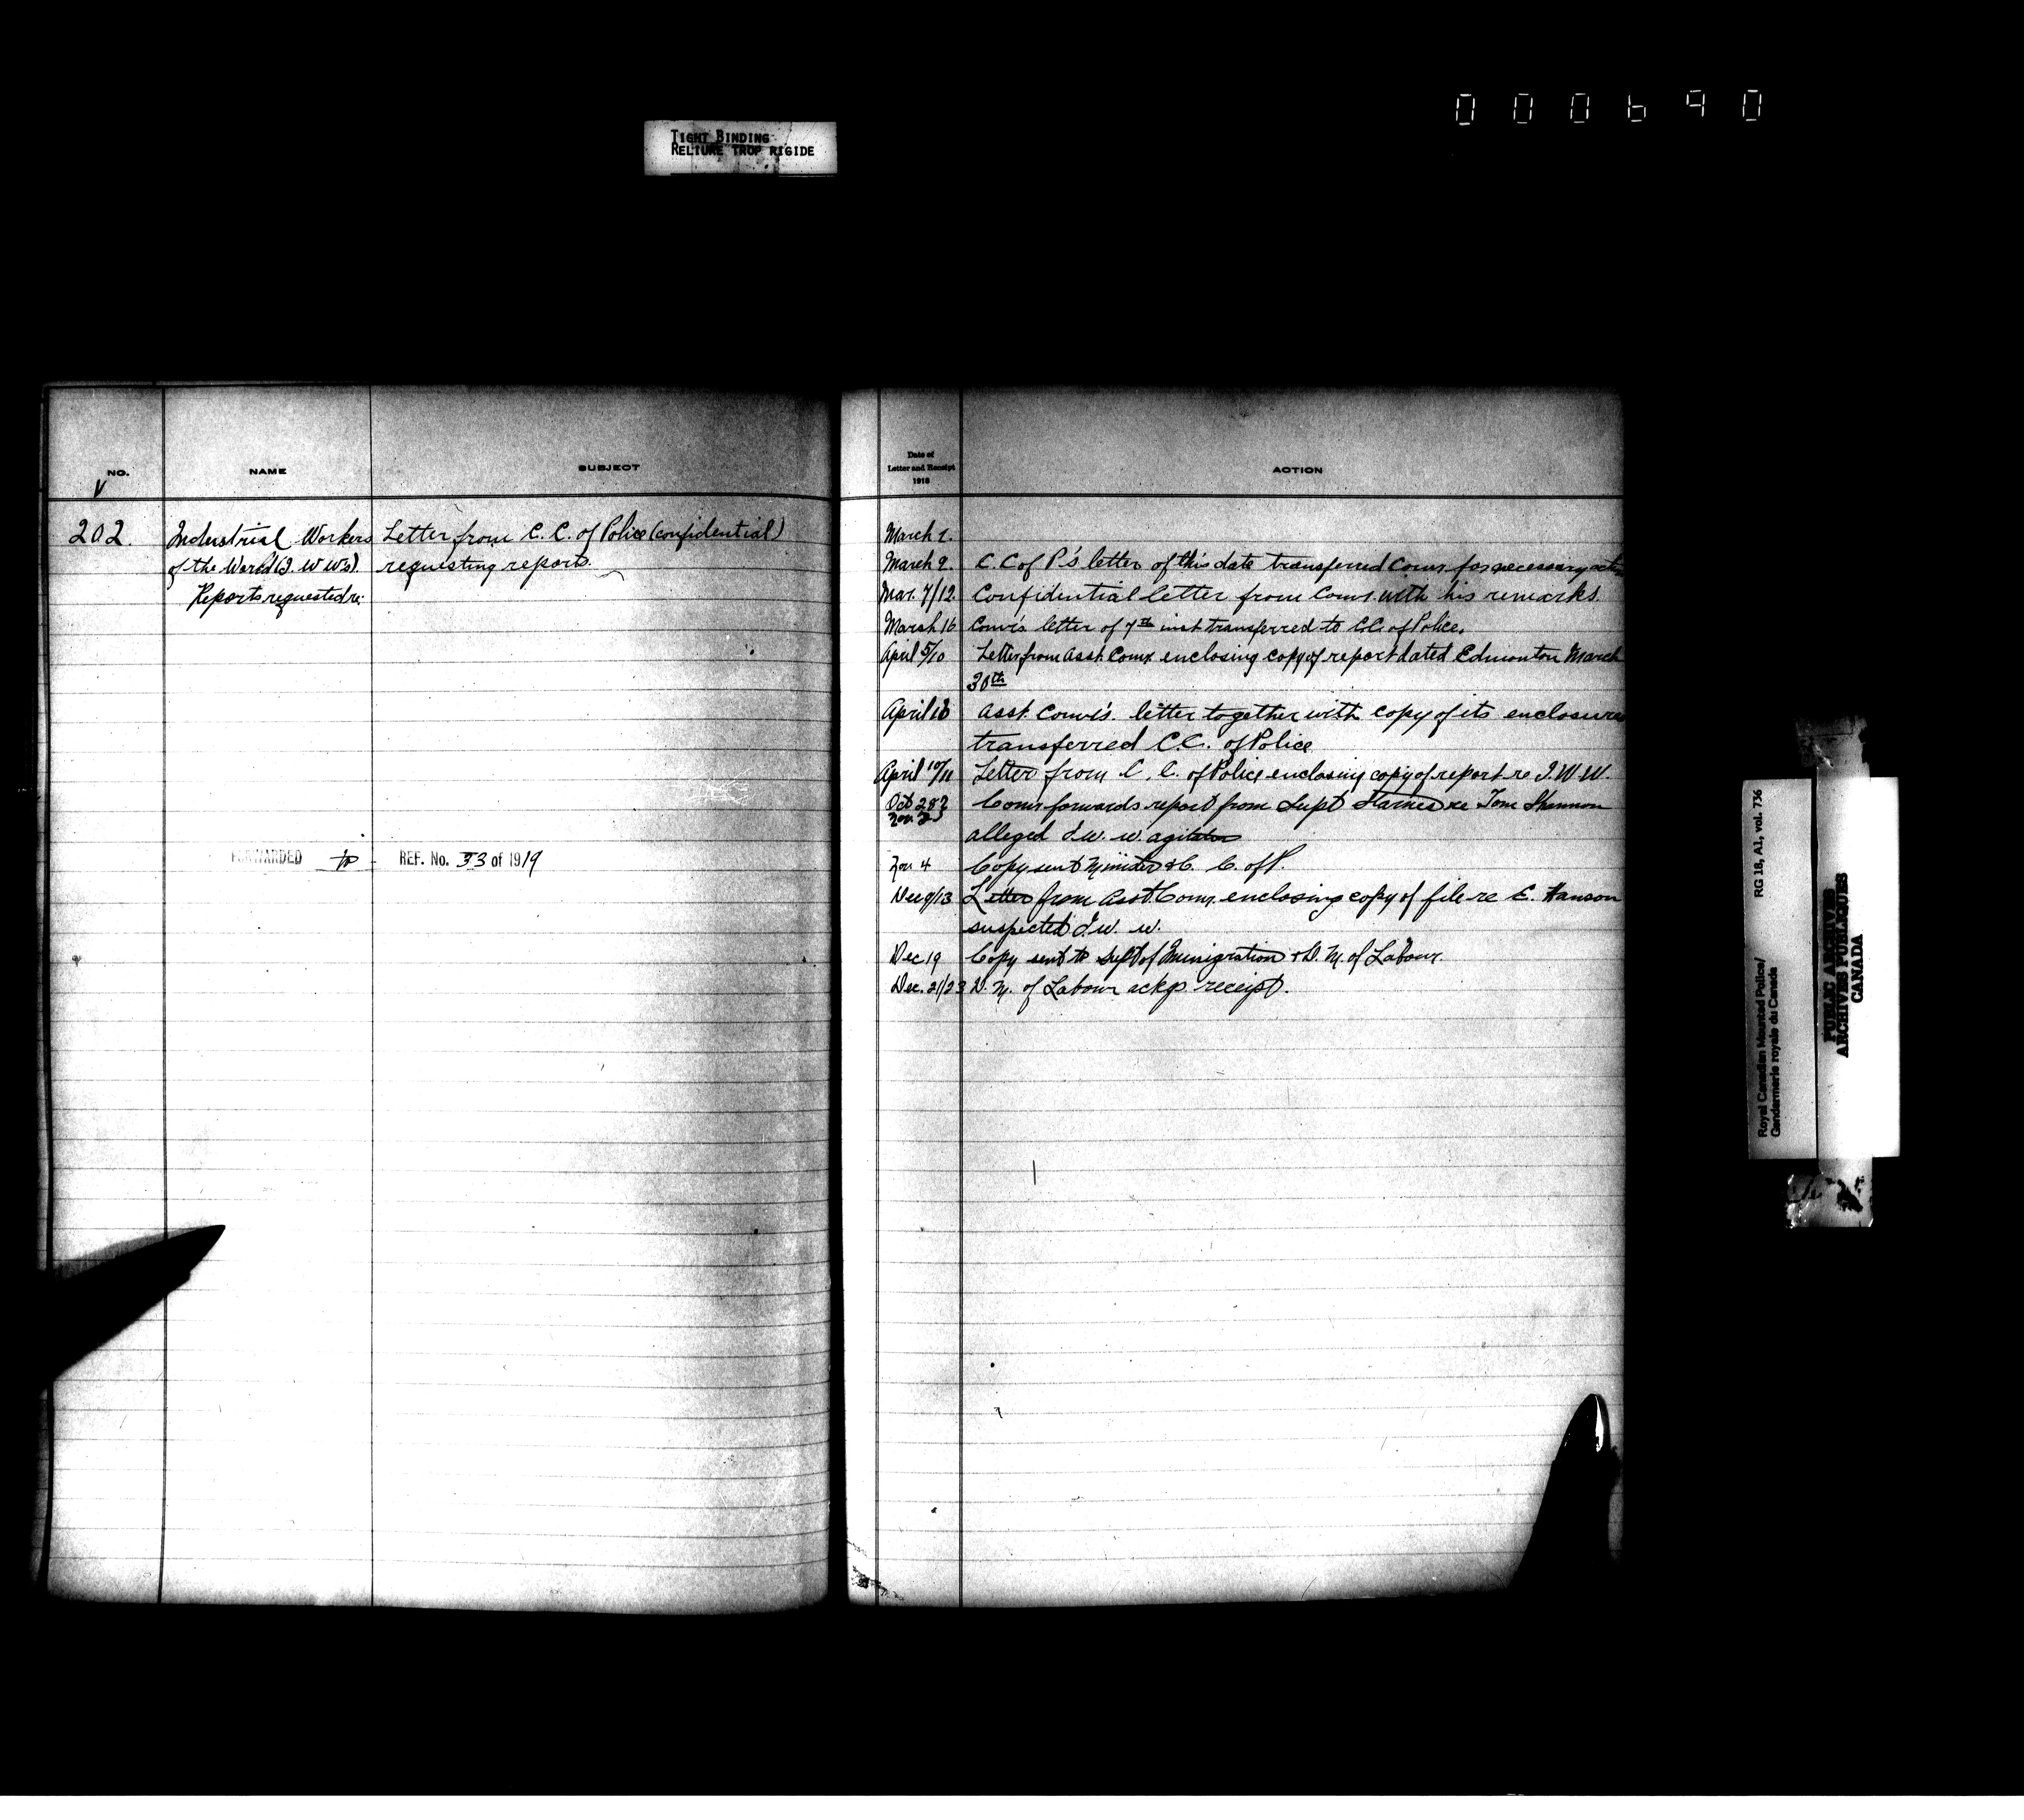 000690
TIGHT BINDING
RELIURE TROP RIGIDE
NO.
NAME
SUBJECT
V
202.
Industrial Workers
of the World (I. W W's).
Reports requested re:
Letter from C. C. of Police (confidential)
requesting reports.
FORWARDED to - REF. No. 33 of 1919
Date of
Letter and Receipt
1918
ACTION
March 2.
March 2. C. C of P's letter of this date transferred Comr for necessary
Mar. 7/12. Confidential letter from Comr. with his remarks.
March 16 Comr's letter of 7th inst transferred to C.C. of Police.
April 5/10 Letter from Asst. Comr. enclosing copy of report dated Edmonton March
30th
April 18 Asst. Comr's. letter together with copy of its enclosure
transferred C.C. of Police
April 10/11 Letter from C. C. of Police enclosing copy of report re I. W. W.
Oct 28 Comr forwards report from Supt Starnes re Tom Shannon
Nov. 2
alleged I. w. w. agitator
Nov. 4 Copy sent Minister & C. C. of P.
Dec 9/13 Letter from Asst. Comr. enclosing copy of file re E. Hanson
suspected I. w. w.
Dec 19 Copy sent to Supt of Immigration & D. M. of Labour.
Dec. 21/23 D. M. of Labour ackgs receipt.
Royal Canadian Mounted Police/ RG 18, A1, vol. 736
Gendarmerie royale du Canada
PUBLIC ARCHIVES
ARCHIVES PUBLIQUES
CANADA